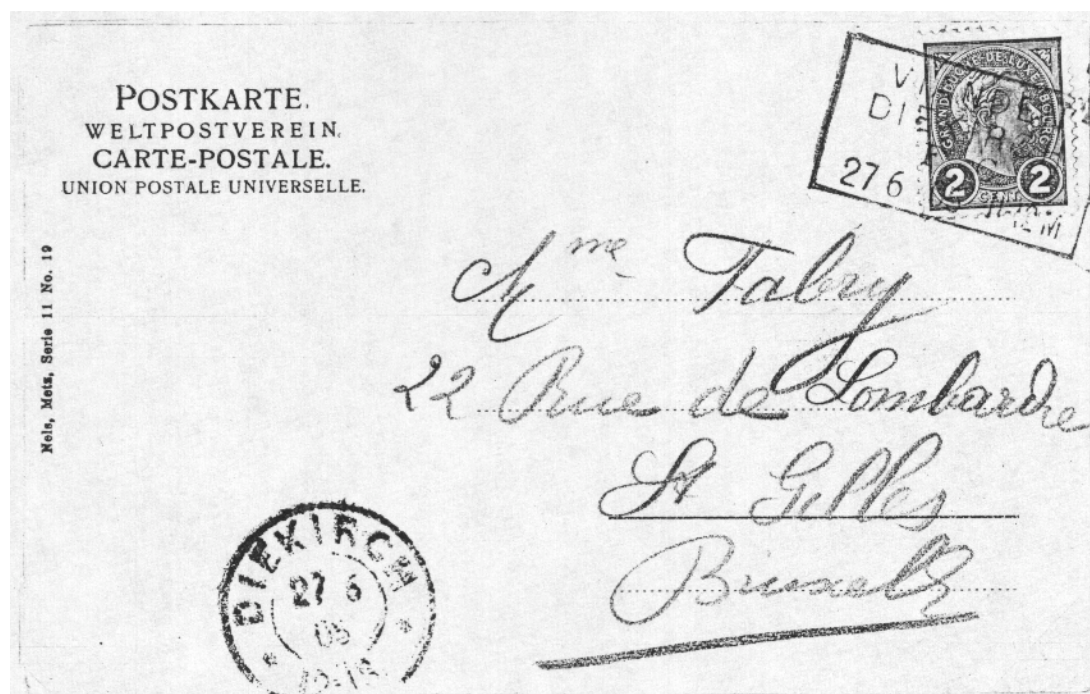 POSTKARTE.
WELTPOSTVEREIN.
CARTE-POSTALE.
UNION POSTALE UNIVERSELLE.
Nels, Metz, Serie 11 No. 19
GRAND DUCHÉ DE LUXEMBOURG
2 2
CENT.
27 6
Mme Fabry
22 Rue de Lombardie
St Gilles
Bruxelles
DIEKIRCH
27 6